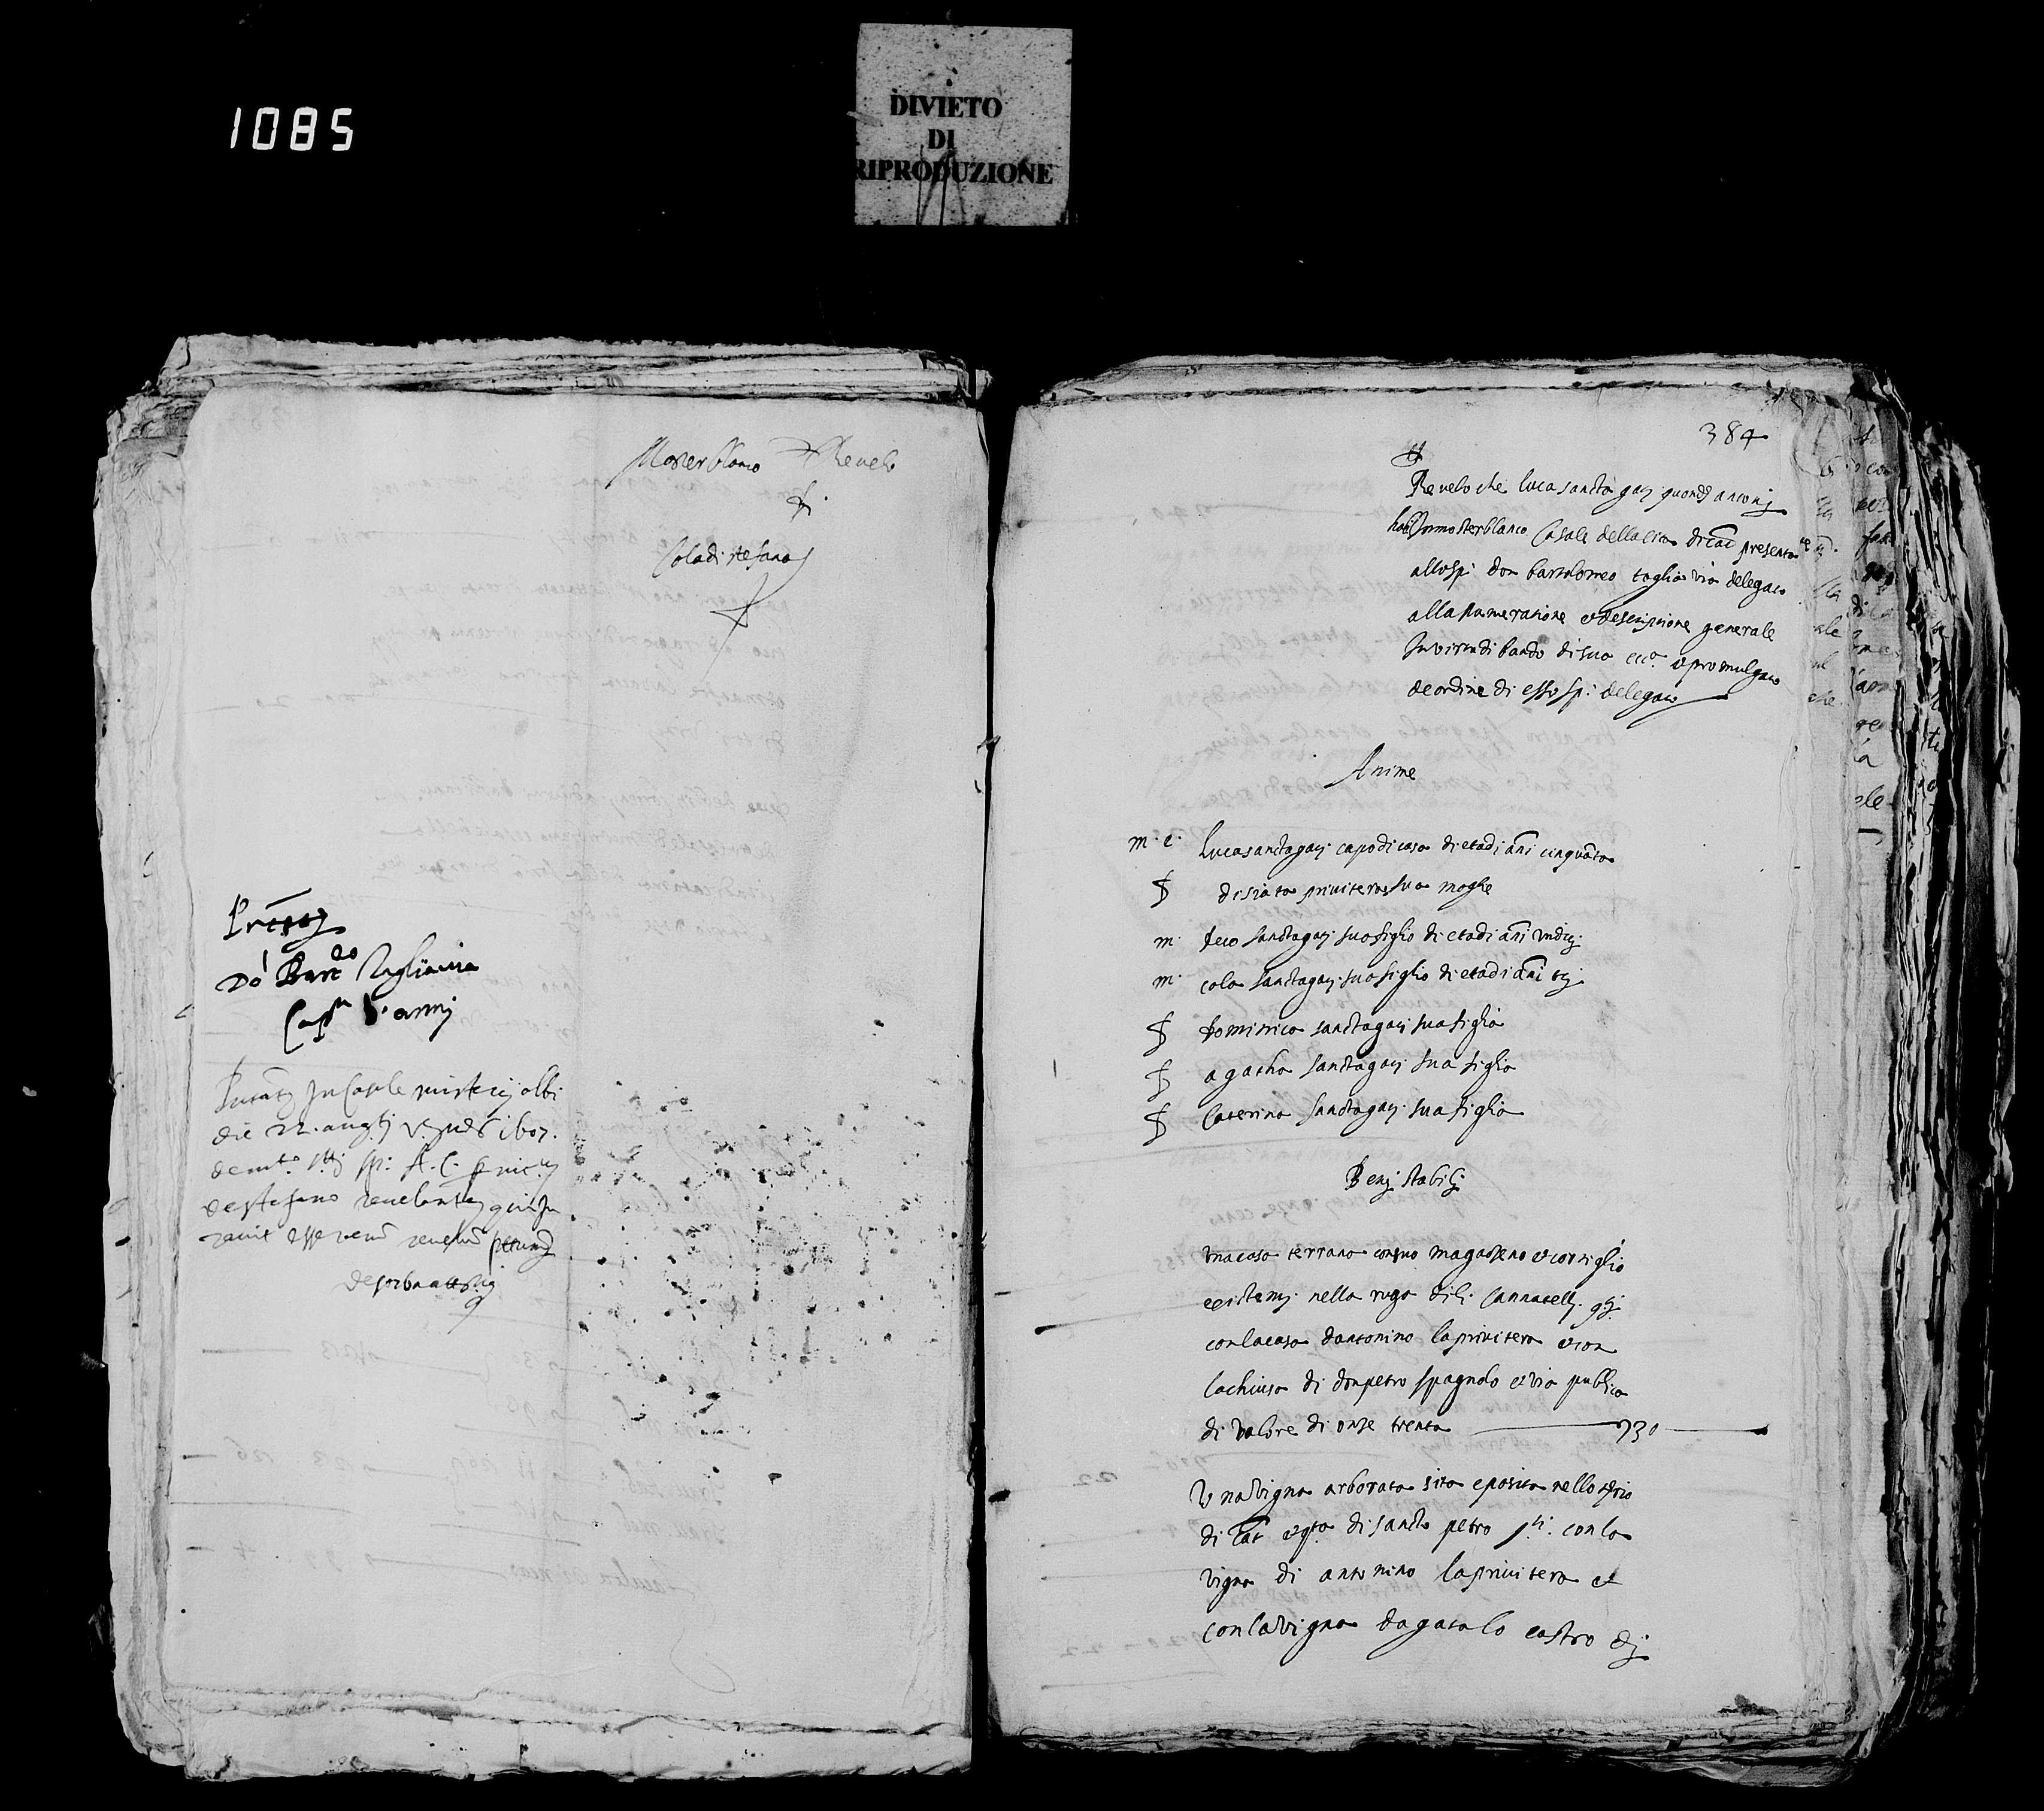 1085
DIVIETO
DI
RIPRODUZIONE
Mosterblanco Revelo
di
Cola di stefano
Do Bartdo Tagliavia
Cap d'armi
in Casale misterij albi
die 22 augti 1607.
de stefano revelante qui Ju
ravit esse revelu
384
Revelo che luca sanctagati quond antonij
habit In mosterblanco Casale della cita di cat presenta
allo sp: don bartolomeo tagliavia delegato
alla numeratione et descriptione generale
In virtu di bando di sua ecca et promulgato
de ordine di esso sp: delegato
Anime
m. c. Luca sanctagati capo di casa di eta di ani cinquata
f disiata privitera sua moglie
m. sanctagati suo figlio di eta di ani undici
m. cola sanctagati suo figlio di eta di ani tri
f dominica sanctagati sua figlia
f agatha sanctagati sua figlia
f Caterina sanctagati sua figlia
Beni stabili
una casa terrana con suo magaseno et cortiglio
existenti nella ruga di li Cannatelli
con la casa d antonino la privitera et con
la chiusa di don petro spagnolo et via publica
di valore di onze trenta 30
Una vigna arborata sita e posita nello
di Cat di sancto petro con la
vigna di antonino la privitera et
con la vigna d agata lo castro di